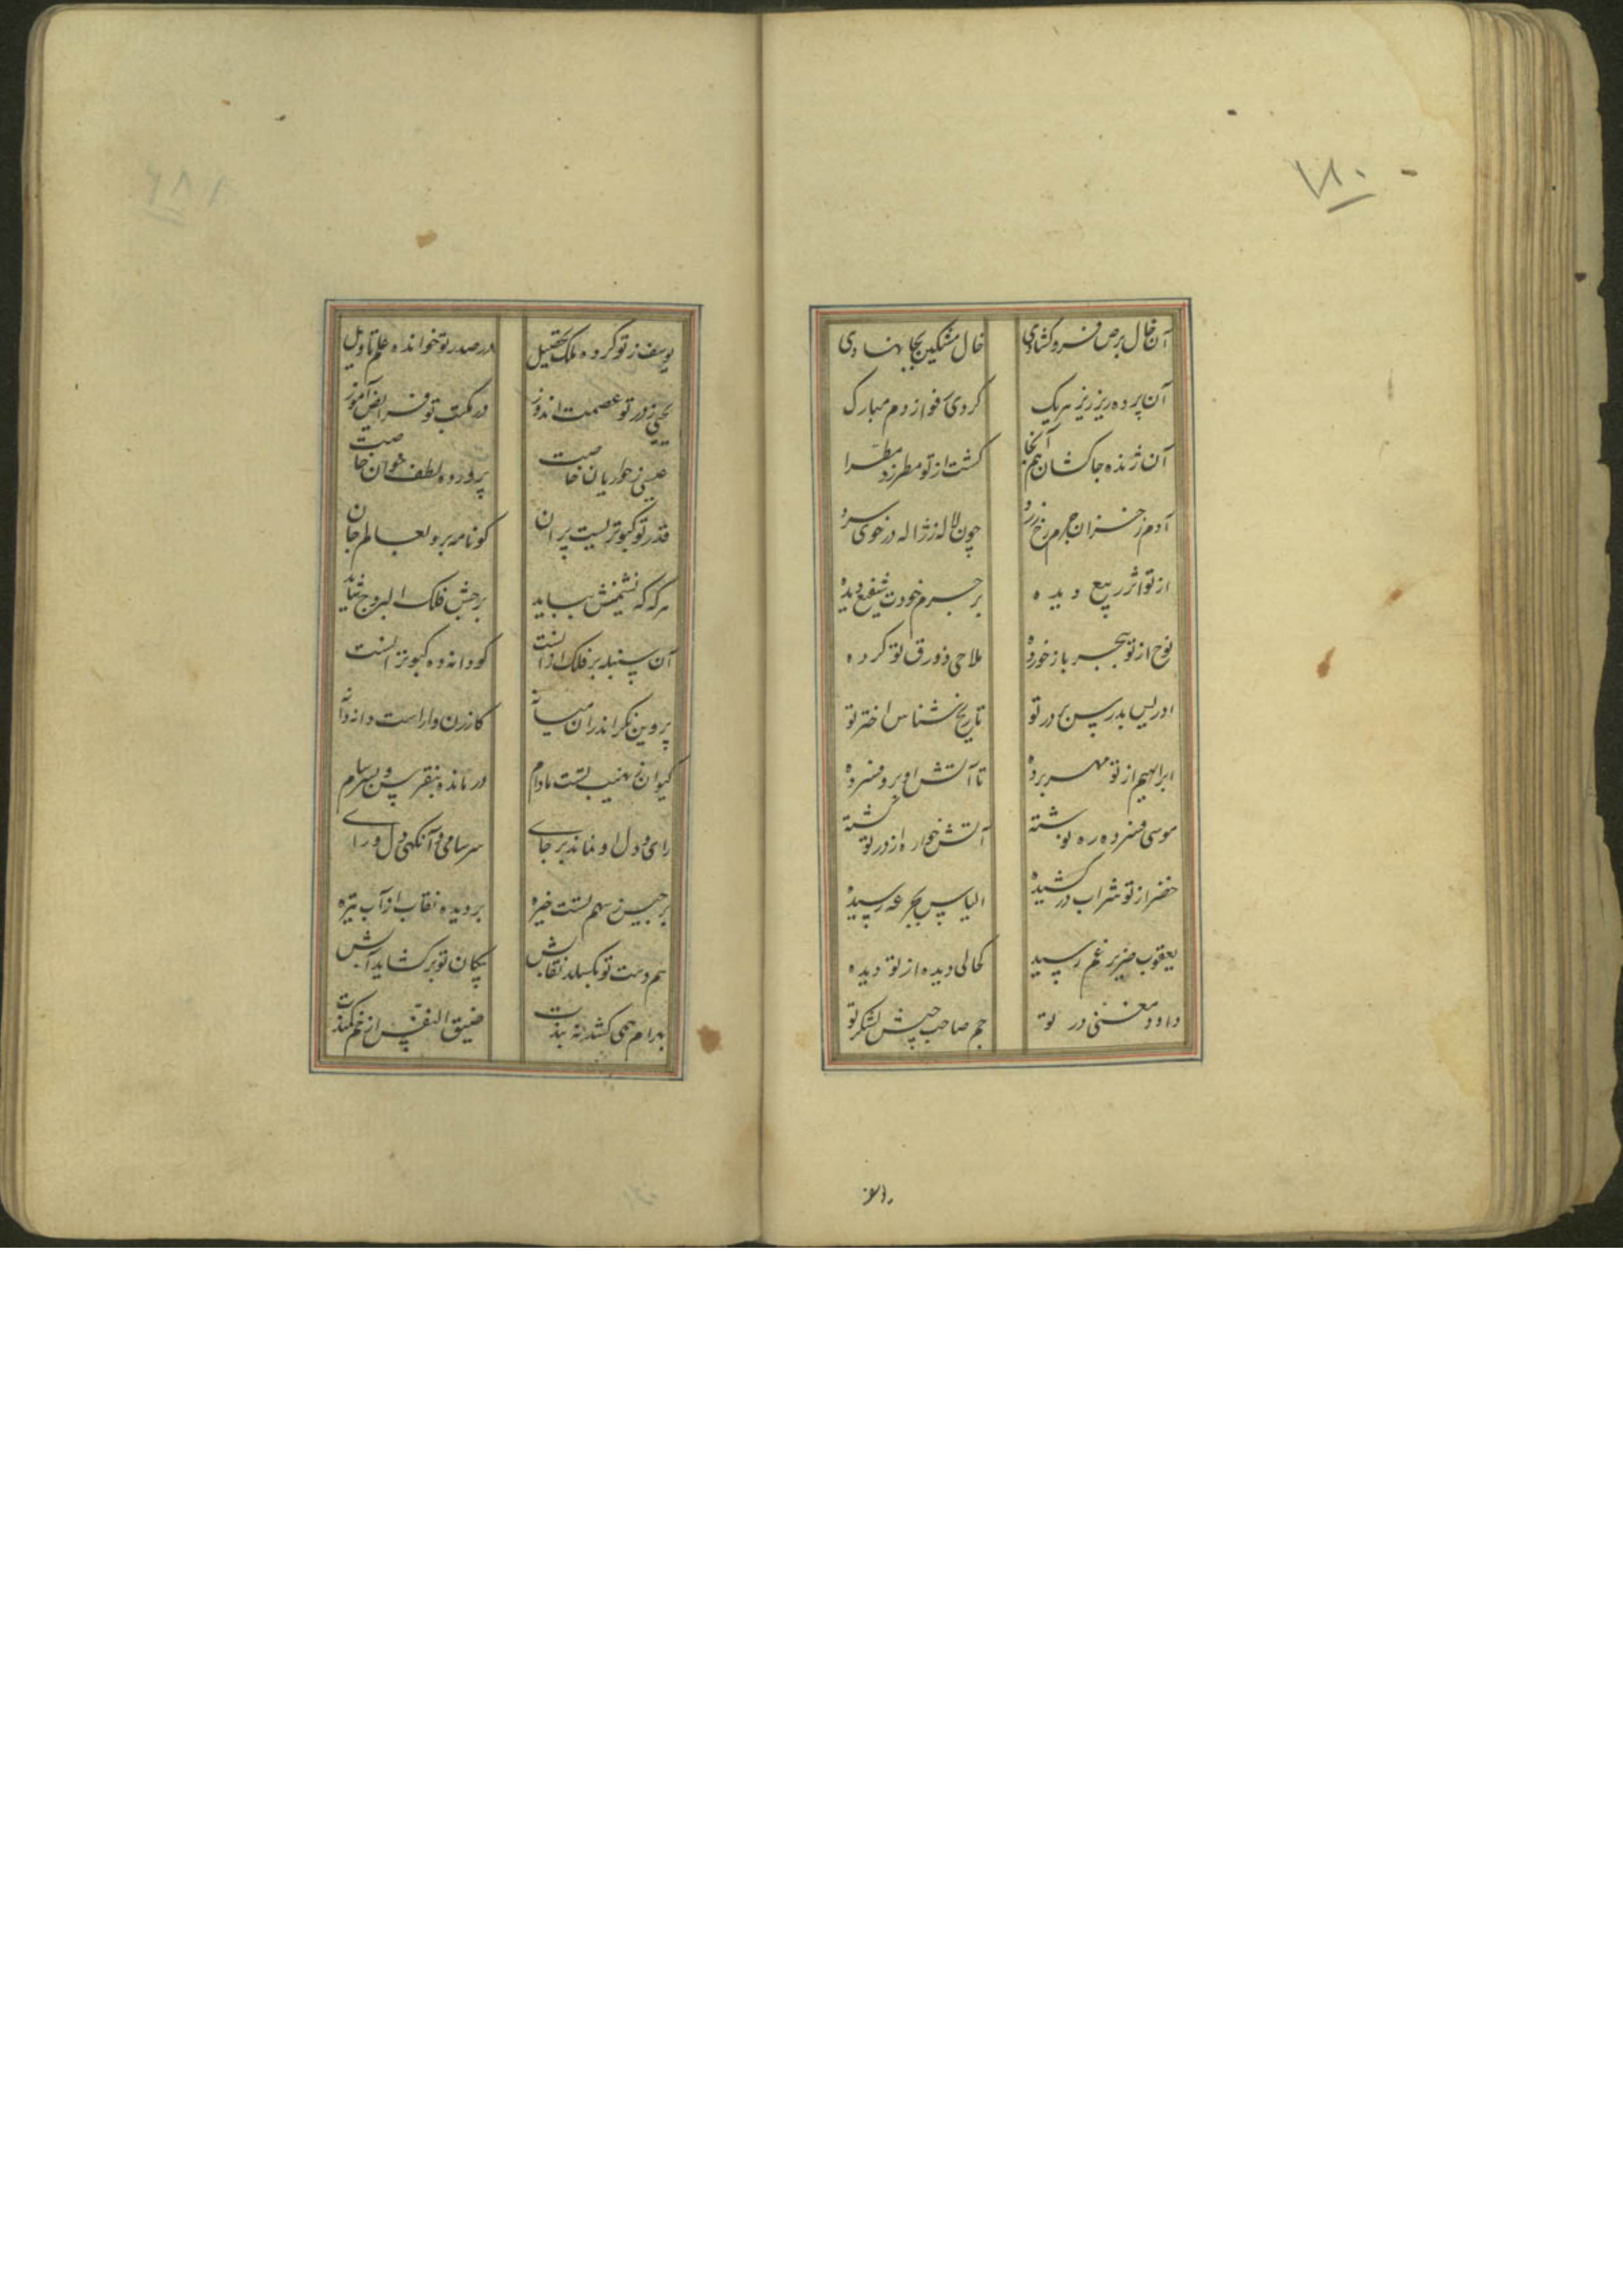 ۱۸۰
آن خال برص فرو گشادی خال مشکین بجا نهادی
آن پرده ریز ریز هر یک کردی ز فواد دم مبارک
آن ژنده جا کشان هم آنجا گشت از تو مطرز مطرا
آدم ز خزان جرم رخ زرد چون لاله ز ژاله در خوی سرد
از تو اثر ربیع دیده بر جرم خودت شفیع دیده
نوح از تو ببحر باز خورده ملاحی زورق تو کرده
ادریس بدرس بر در تو تاریخ شناس اختر تو
ابراهیم از تو مهر برده تا آتش او برو فسرده
موسی ز فسرده ره نوشته آتش خواره از در تو گشته
خضر از تو شراب درکشیده الیاس بجرعه رسیده
یعقوب ضریر غم رسیده کحالی دیده از تو دیده
داود مغنی در تو جم صاحب جیش لشکر تو
یوسف ز تو کرده ملک تحصیل در صدر تو خوانده علم تاویل
یحیی ز در تو عصمت اندوز در مکتب تو فرایض آموز
عیسی ز حواریان خاصت پرورده لطف خوان خاصت
قدر تو کبوتریست پران کو نامه برد بعالم جان
هر که که نشیمنش بباید برجش فلک البروج شاید
آن سنبله بر فلک او راست کو دانه ده کبوتر است
پروین نگر اندران میانه کارزن وار است دانه دانه
کیوان ز نهیب تست مادام درمانده بنقرس و بسرسام
رای و دل او نماند بر جای سرسامی و آنگهی دل و رای
برجیس ز سهم تست خیره بر دیده نقاب از آب تیره
هم دست تو بگسلد نقابش پیکان تو برگشاید آبش
بهرام همی کشد نه بندت ضیق النفس از خم کمندت